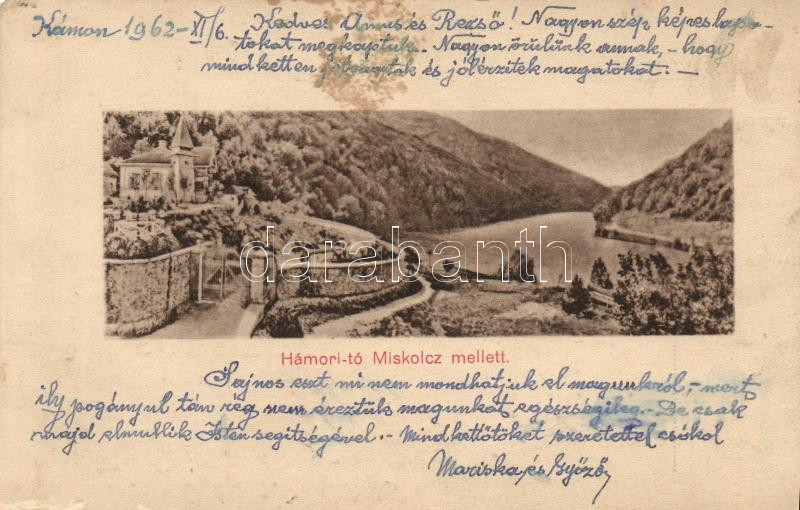 Kámon 1962-XI/6. Kedves Annus és Rezső! Nagyon szép képeslapo-
tokat megkaptuk. Nagyon örülünk annak, - hogy
mindketten jól vagytok és jól érzitek magatokat. -
darabanth.com
Hámori-tó Miskolcz mellett.
Sajnos ezt mi nem mondhatjuk el magunkról, - mert
ily pogányul tán rég nem éreztük magunkat egészségileg. - De csak
majd elmullik Isten segitségével. - Mindkettőtöket szeretettel csókol
Mariska és Győző